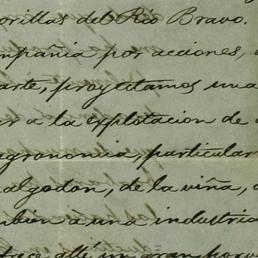 orillas del Rio Bravo.
mpañia por acciones,
arte, proyectamos una
ar a la explotacion de
agronomia, particular
algodon, de la viña,
mbien a una industria
allí un gran porv